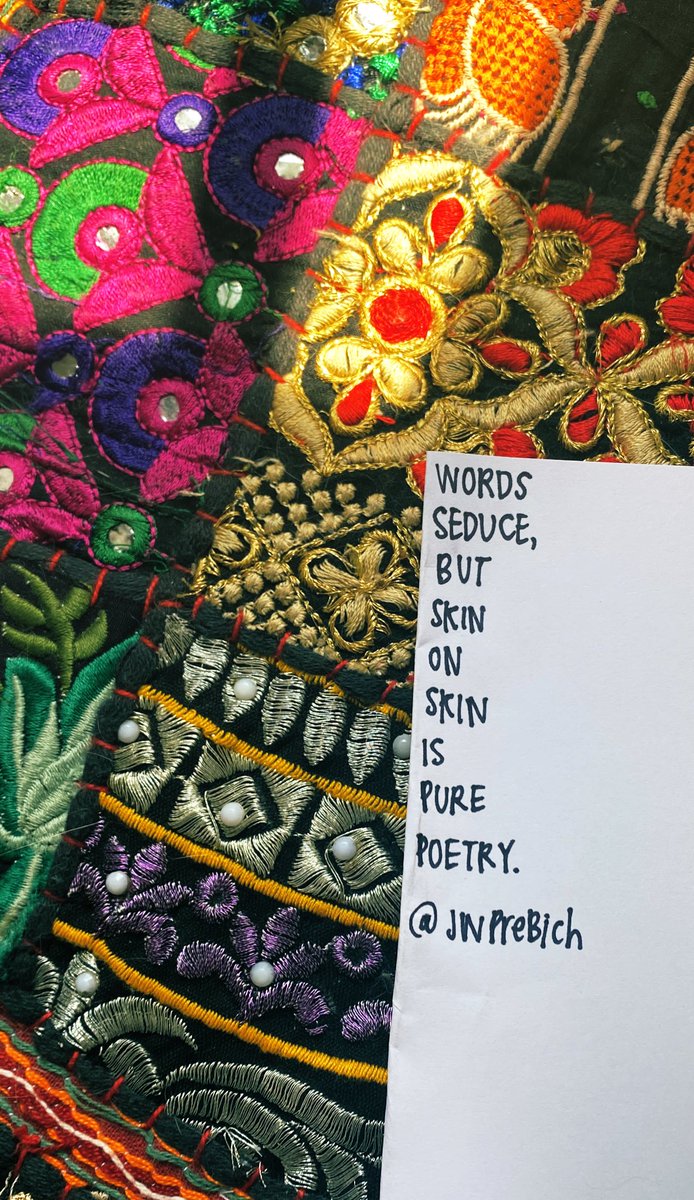 WORDS
SEDUCE,
BUT
SKIN
ON
SKIN
IS
PURE
POETRY.
@JWPreBich